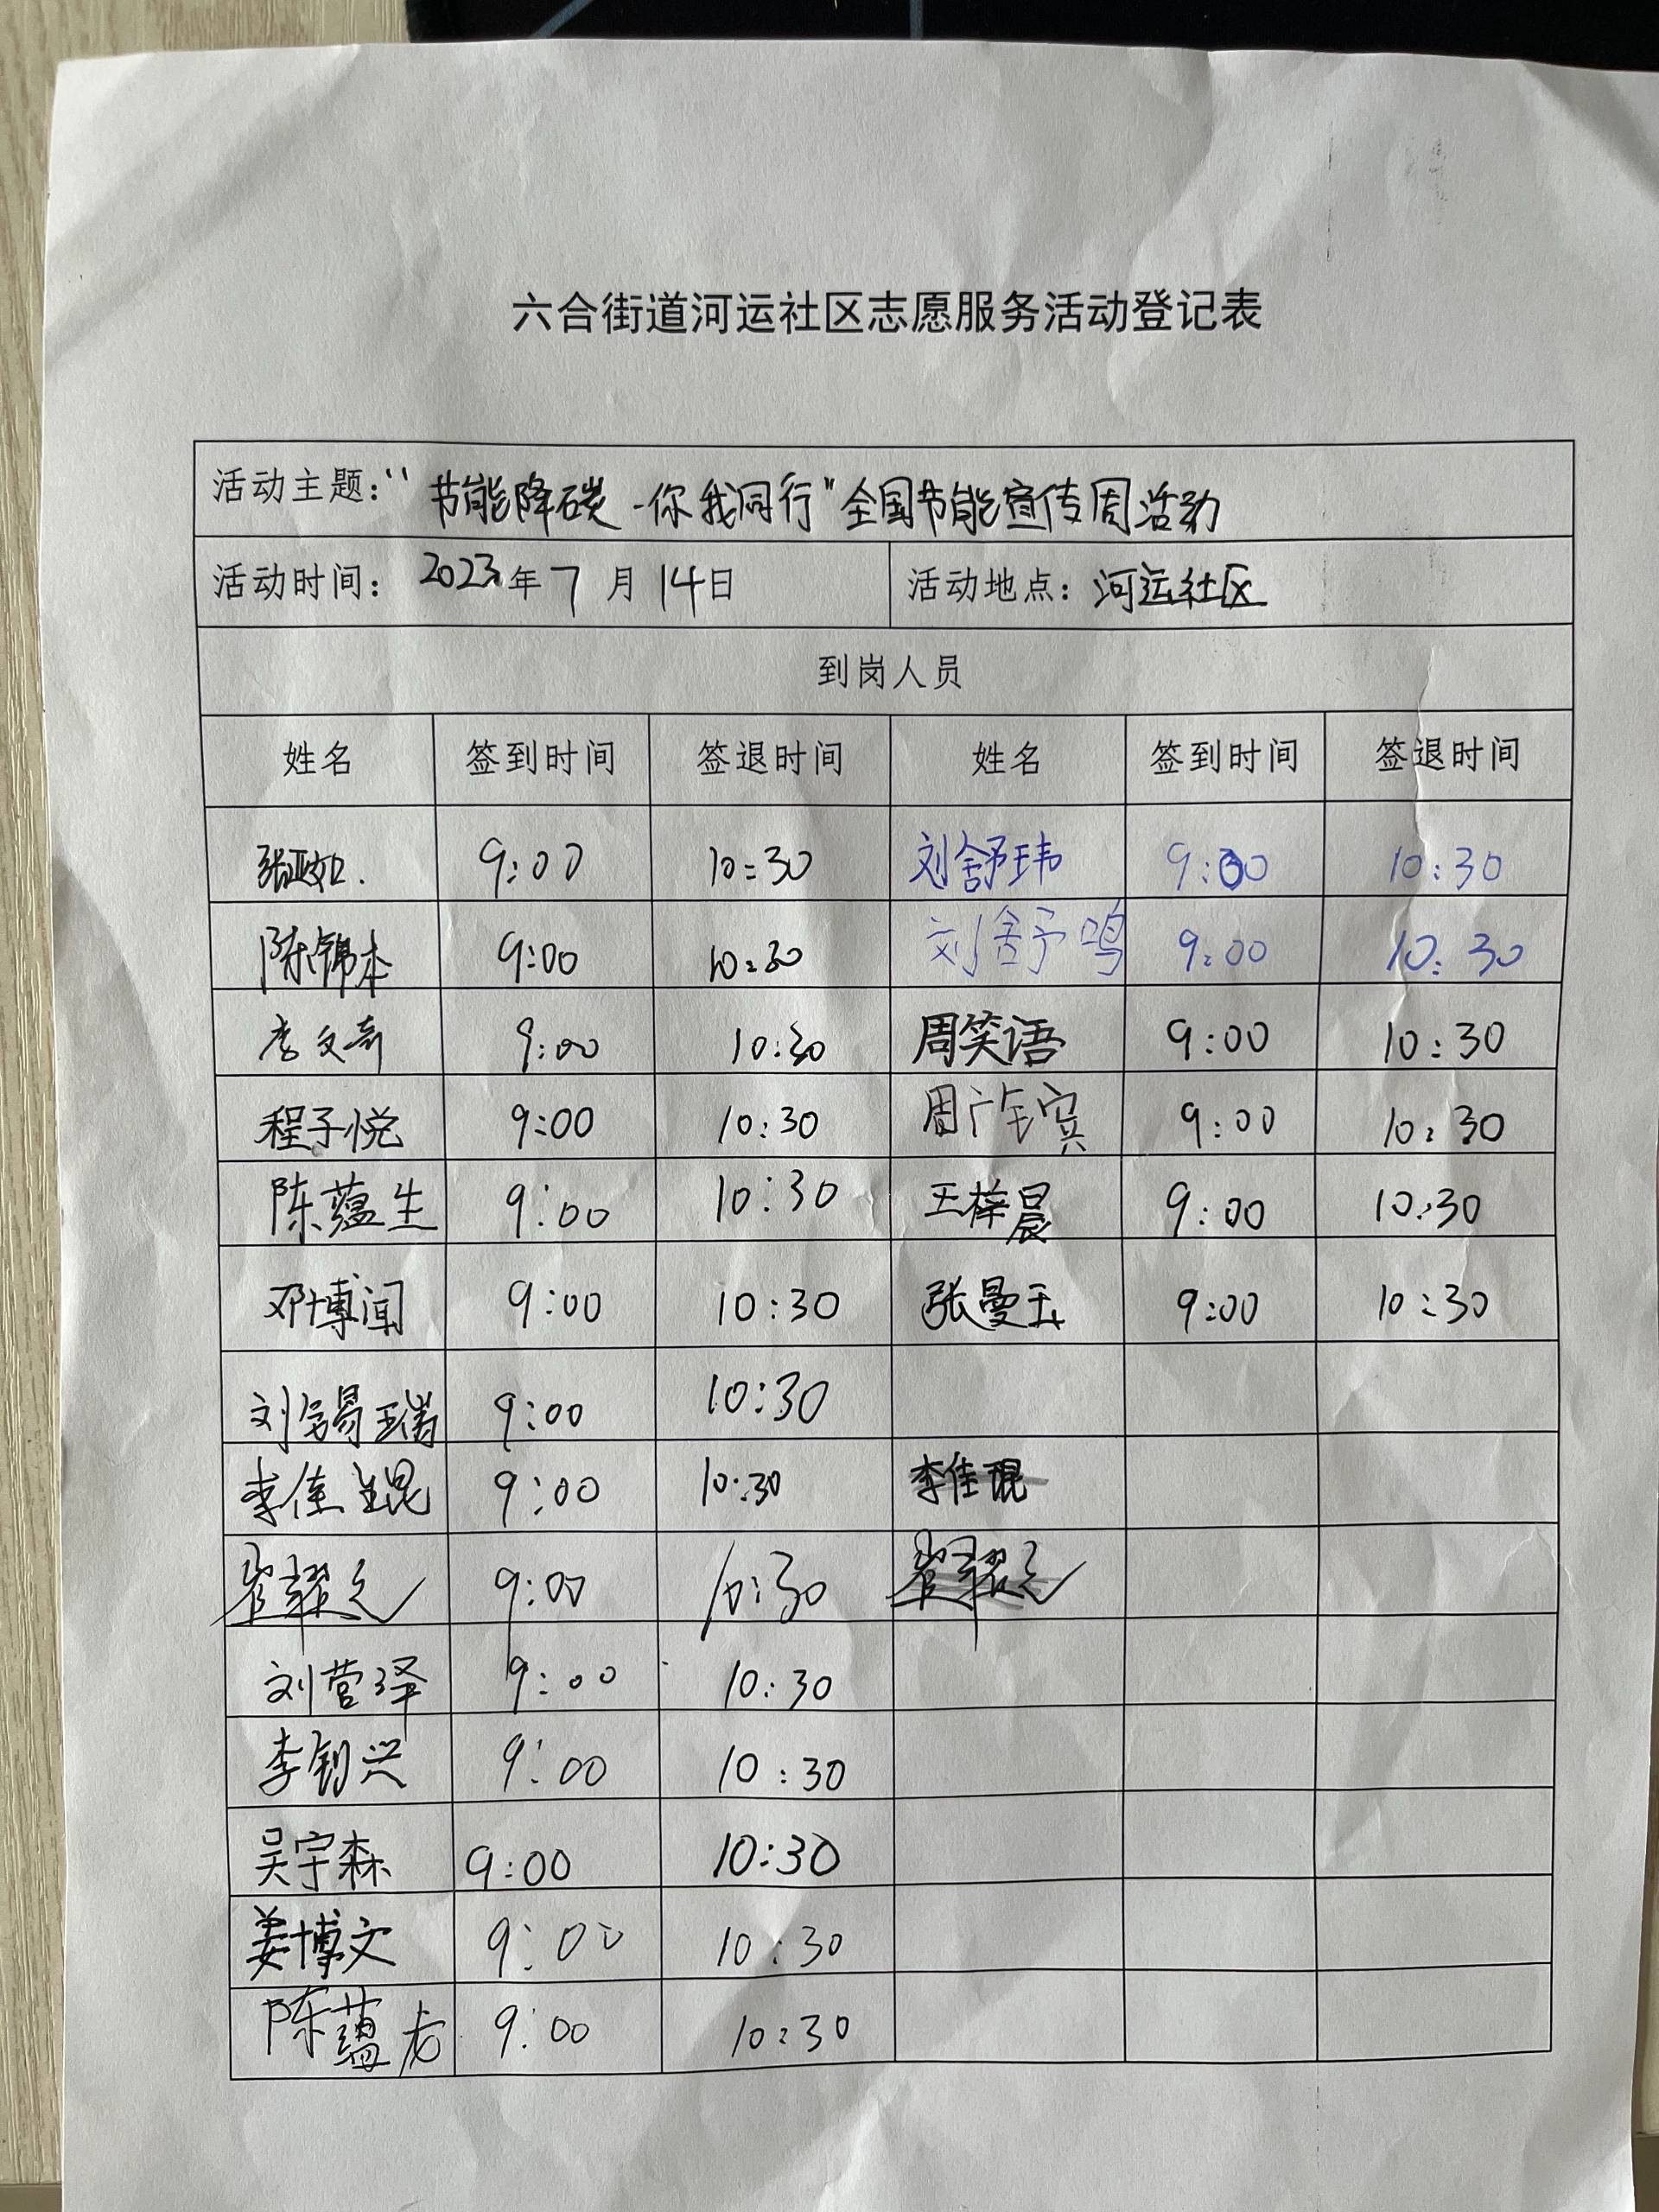 六合街道河运社区志愿服务活动登记表
活动主题："节能降碳-你我同行"全国节能宣传周活动
活动时间：2023年7月14日 活动地点：河运社区
到岗人员
姓名 签到时间 签退时间 姓名 签到时间 签退时间
张亚如. 9:00 10:30 刘舒玮 9:00 10:30
陈锦本 9:00 10:30 刘舒鸣 9:00 10:30
李文奇 9:00 10:30 周笑语 9:00 10:30
程子悦 9:00 10:30 周 9:00 10:30
陈蕴生 9:00 10:30 王梓晨 9:00 10:30
邓博闻 9:00 10:30 张曼玉 9:00 10:30
刘锡瑞 9:00 10:30
李佳琨 9:00 10:30 李佳琨
崔耀之 9:00 10:30 崔耀之
刘营泽 9:00 10:30
李钊兴 9:00 10:30
吴宇森 9:00 10:30
姜博文 9:00 10:30
陈蕴龙 9:00 10:30